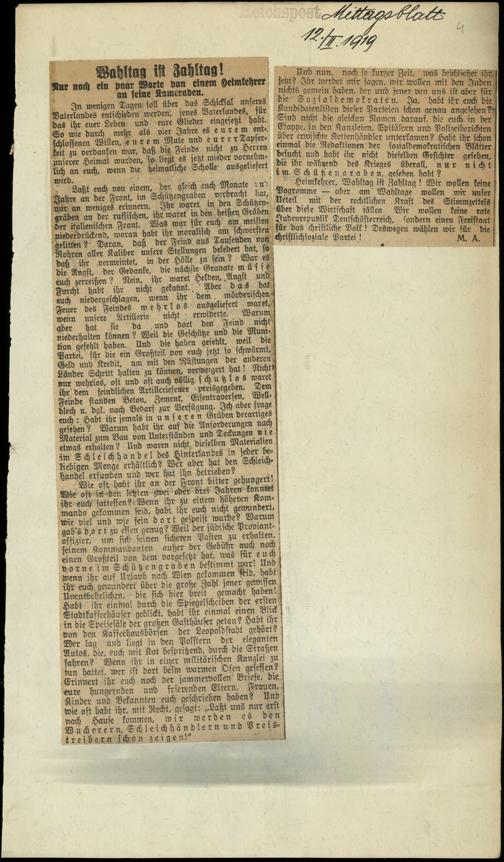 Reichspost Mittagsblatt
12./II. 1919
4
Wahltag ist Zahltag!
Nur noch ein paar Worte von einem Heimkehrer
an seine Kameraden.
In wenigen Tagen soll über das Schicksal unseres
Vaterlandes entschieden werden, jenes Vaterlandes, für
das ihr euer Leben und eure Glieder eingesetzt habt.
So wie durch mehr als vier Jahre es eurem ent-
schlossenen Willen, eurem Mute und eurer Tapfer-
keit zu verdanken war, daß die Feinde nicht zu Herren
unserer Heimat wurden, so liegt es jetzt wieder vornehm-
lich an euch, wenn die heimatliche Scholle ausgeliefert
wird.
Laßt euch von einem, der gleich euch Monate und
Jahre an der Front, im Schützengraben verbracht hat,
nur an weniges erinnern. Ihr wart in den Schützen-
gräben an der russischen, ihr waret in den heißen Gräben
der italienischen Front. Was war für euch am meisten
niederdrückend, woran habt ihr moralisch am schwersten
gelitten? Daran, daß der Feind aus Tausenden von
Rohren aller Kaliber unsere Stellungen beledert hat, so
daß ihr vermeintet, in der Hölle zu sein? War es
die Angst, der Gedanke, die nächste Granate müsse
euch zerreißen? Nein, ihr waret Helden, Angst und
Furcht habt ihr nicht gekannt. Aber das hat
euch niedergeschlagen, wenn ihr dem mörderischen
Feuer des Feindes wehrlos ausgeliefert waret,
wenn unsere Artillerie nicht erwiderte. Warum
aber hat sie da und dort den Feind nicht
niederhalten können? Weil die Geschütze und die Muni-
tion gefehlt haben. Und die haben gefehlt, weil die
Partei, für die ein Großteil von euch jetzt so schwärmt,
Geld und Kredit, um mit den Rüstungen der anderen
Länder Schritt halten zu können, verweigert hat! Nicht
nur wehrlos, oft und oft auch völlig schutzlos waret
ihr dem feindlichen Artilleriefeuer preisgegeben. Dem
Feinde standen Beton, Zement, Eisentraversen, Well-
blech u. dgl. nach Bedarf zur Verfügung. Ich aber frage
euch: Habt ihr jemals in unseren Gräben derartiges
gesehen? Warum habt ihr auf die Anforderungen nach
Material zum Bau von Unterständen und Deckungen nie
etwas erhalten? Und waren nicht dieselben Materialien
im Schleichhandel des Hinterlandes in jeder be-
liebigen Menge erhältlich? Wer aber hat den Schleich-
handel erfunden und wer hat ihn betrieben?
Wie oft habt ihr an der Front bitter gehungert!
Wie oft in den letzten zwei oder drei Jahren konntet
ihr euch sattessen? Wenn ihr zu einem höheren Kom-
mando gekommen seid, habt ihr euch nicht gewundert,
wie viel und wie fein dort gespeist wurde? Warum
gab's dort zu essen genug? Weil der jüdische Proviant-
offizier, um sich seinen sicheren Posten zu erhalten,
seinem Kommandanten außer der Gebühr auch noch
einen Großteil von dem vorgesetzt hat, was für euch
vorne im Schützengraben bestimmt war! Und
wenn ihr auf Urlaub nach Wien gekommen seid, habt
ihr euch gewundert über die große Zahl jener gewissen
Unentbehrlichen, die sich hier breit gemacht haben!
Habt ihr einmal durch die Spiegelscheiben der ersten
Stadtkaffeehäuser geblickt, habt ihr einmal einen Blick
in die Speisesäle der großen Gasthäuser getan? Habt ihr
von den Kaffeehausbörsen der Leopoldstadt gehört?
Wer lag und liegt in den Polstern der eleganten
Autos, die, euch mit Kot bespritzend, durch die Straßen
fahren? Wenn ihr in einer militärischen Kanzlei zu
tun hattet, wer ist dort beim warmen Ofen gesessen?
Erinnert ihr euch noch der jammervollen Briefe, die
eure hungernden und frierenden Eltern, Frauen,
Kinder und Bekannten euch geschrieben haben? Und
wie oft habt ihr, mit Recht, gesagt: „Laßt uns nur erst
nach Hause kommen, wir werden es den
Wucherern, Schleichhändlern und Preis-
treibern schon zeigen!"
Und nun, nach so kurzer Zeit, was beschließet ihr
jetzt? Ihr werdet mir sagen, wir wollen mit den Juden
nichts gemein haben, der und jener von uns ist aber für
die Sozialdemokraten. Ja, habt ihr euch die
Kandidatenlisten dieser Parteien schon genau angesehen?
Sind nicht die gleichen Namen darauf, die euch in der
Etappe, in den Kanzleien, Spitälern und Polizeiberichten
über erwischte Kettenhändler unterkamen? Habt ihr schon
einmal die Redaktionen der sozialdemokratischen Blätter
besucht und habt ihr nicht dieselben Gesichter gesehen,
die ihr während des Krieges überall, nur nicht
im Schützengraben, gesehen habt?
Heimkehrer, Wahltag ist Zahltag! Wir wollen keine
Pogrome — aber am Wahltage wollen wir unser
Urteil mit der rechtlichen Kraft des Stimmzettels
über diese Wirtschaft fällen. Wir wollen keine rote
Judenrepublik Deutschösterreich, sondern einen Freistaat
für das christliche Volk! Deswegen wählen wir für die
christlichsoziale Partei! M. A.